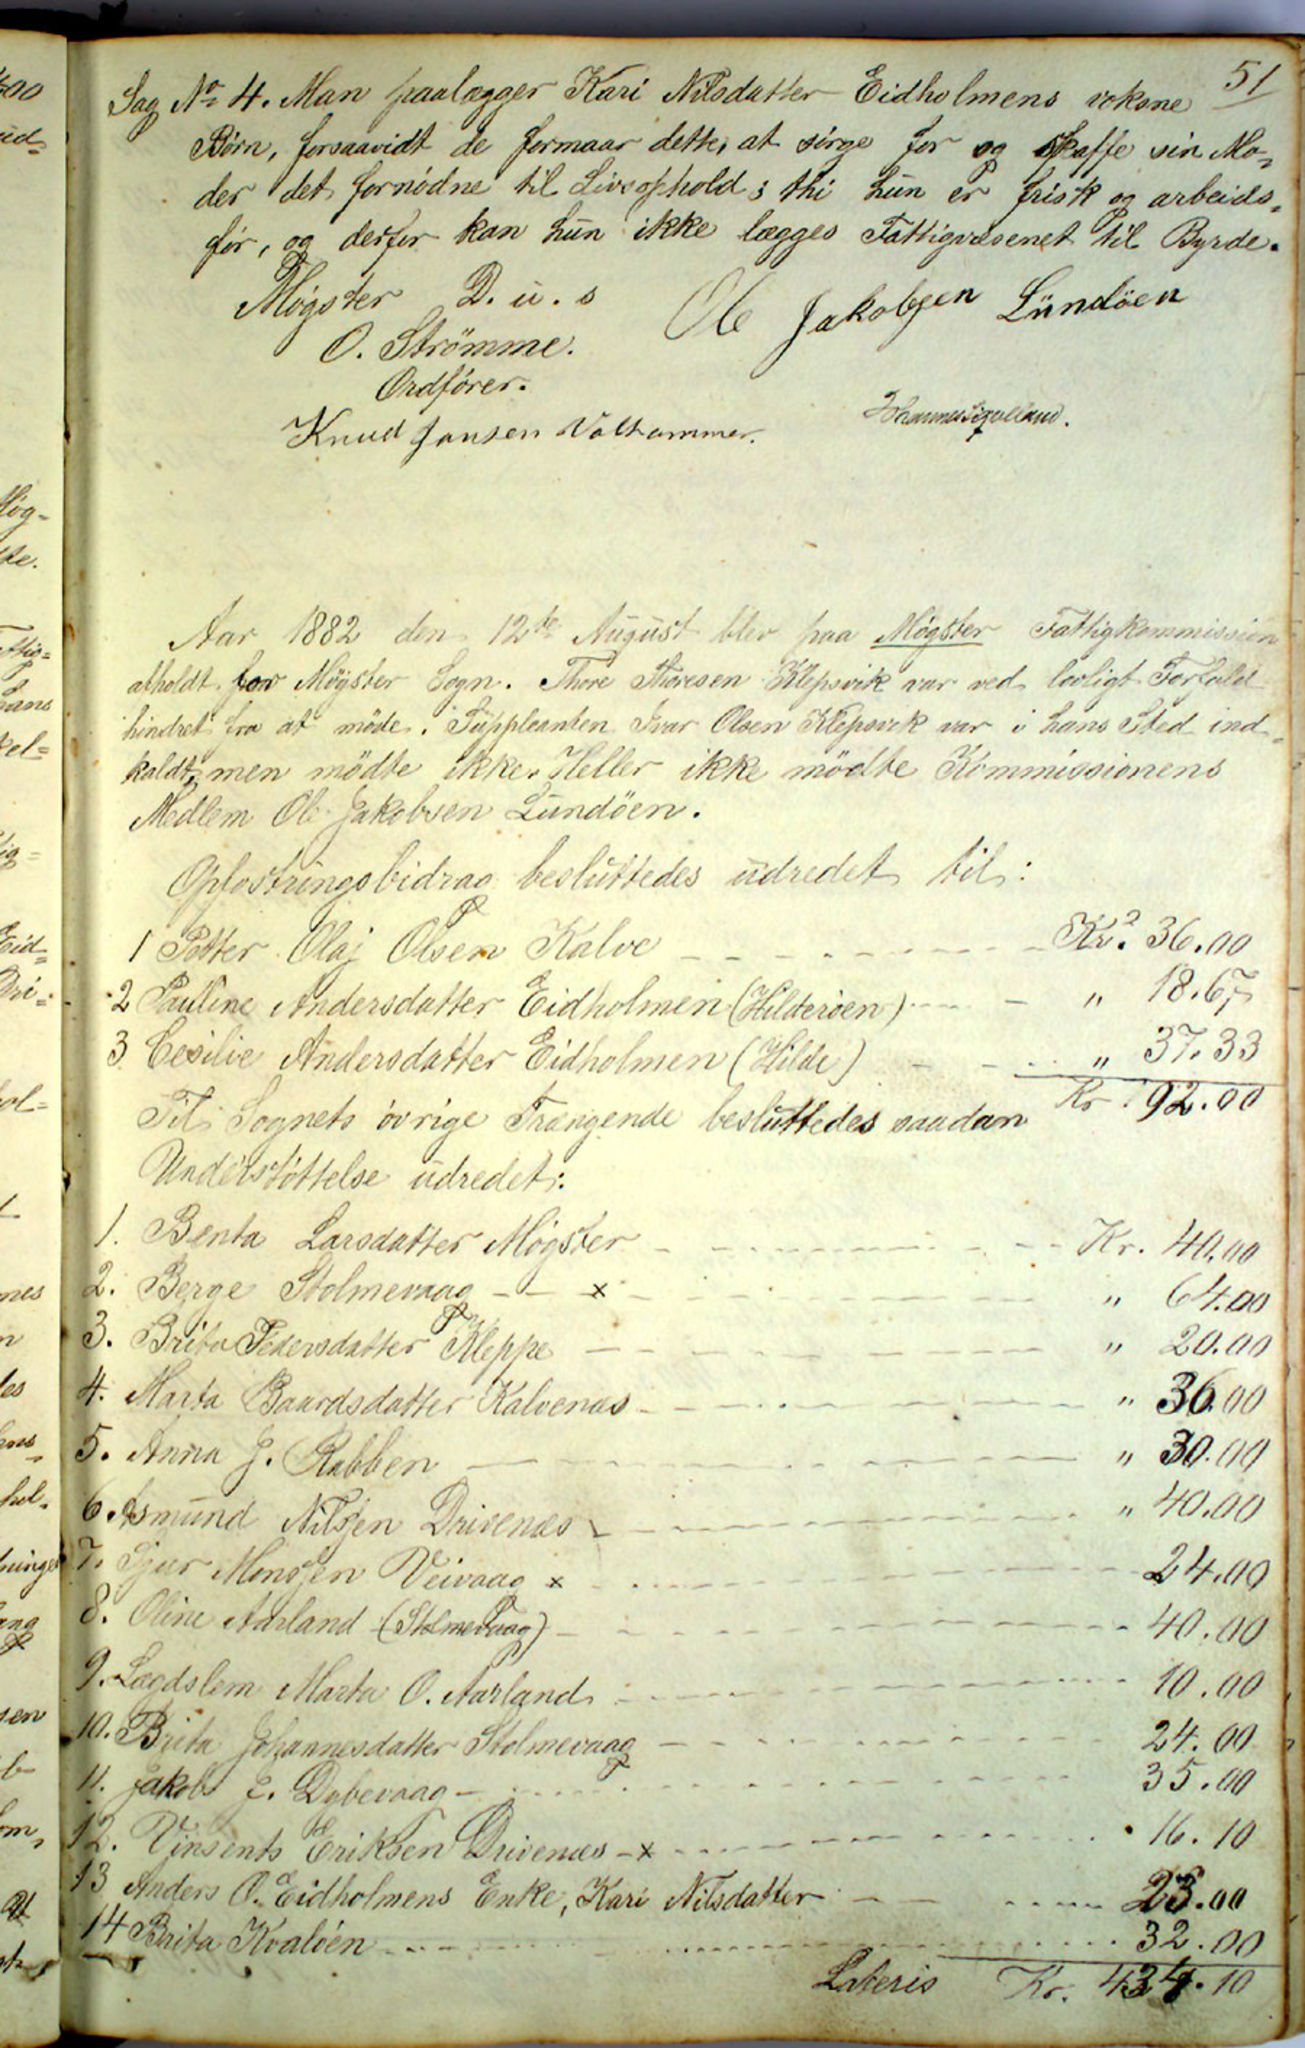 51
Sag No 4. Man paalægger Kari Nilsdatter Eidholmens voksne
Børn, forsaavidt de formaar dette, at sørge for og skaffe sin Mo-
der det fornødne til Livsophold; thi hun er frisk og arbeids-
før, og derfor kan hun ikke lægges Fattigvæsenet til Byrde.
Møgster D. u. s Ole Jakobsen Lundøen
O. Strømme.
Ordfører.
Knud Jansen Valhammer. Johannes
Aar 1882 den 12te August blev paa Møgster Fattigkommission
afholdt for Møgster Sogn. Thore Thoresen Klepsvik var ved lovligt Forfald
hindret fra at møde. Suppleanten Ivar Olsen Klepsvik var i hans Sted ind-
kaldt, men mødte ikke. Heller ikke mødte Kommissionens
Medlem Ole Jakobsen Lundøen.
Opfostringsbidrag besluttedes udredet til:
1 Petter Olaj Olsen Kalve Kr. 36.00
2 Pauline Andersdatter Eidholmen (Hilderøen) " 18.67
3 Cesilie Andersdatter Eidholmen (Hilde) " 37.33
Kr. 92.00
Til Sognets øvrige Trængende besluttedes saadan
Understøttelse udredet:
1. Benta Larsdatter Møgster Kr. 40.00
2. Berge Stolmevaag x " 64.00
3. Brita Pedersdatter Kleppe " 20.00
4. Marta Baardsdatter Kalvenæs " 36.00
5. Anna J. Rabben " 30.00
6. Asmund Nilsen Drivenæs " 40.00
7. Sjur Monsen Veivaag x 24.00
8. Oline Aarland (Stolmevaag) 40.00
9. Lægdslem Marta O. Aarland 10.00
10. Brita Johannesdatter Stolmevaag 24.00
11. Jakob J. Dybevaag 35.00
12. Vinsents Eriksen Drivenæs x 16.10
13 Anders O. Eidholmens Enke, Kari Nilsdatter 23.00
14 Brita Kvaløen 32.00
Lateris Kr. 434.10